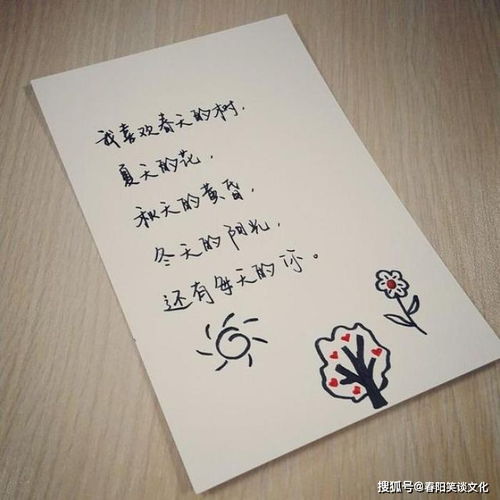 我喜欢春天的树,
夏天的花,
秋天的黄昏,
冬天的阳光,
还有每天的你。
搜狐号@春阳笑谈文化